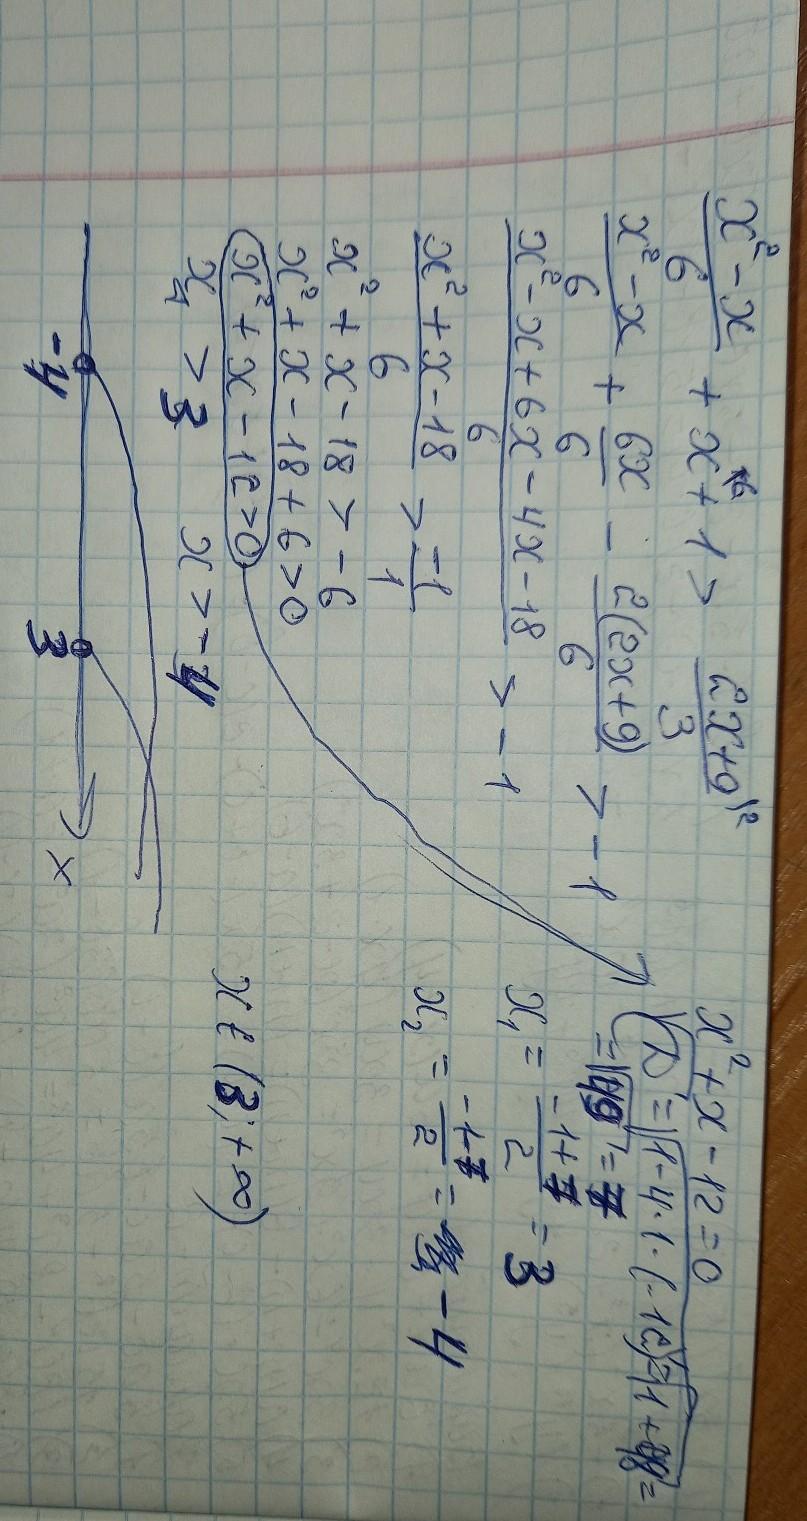 x² - x / 6 + x + 1 > 2x + 9 / 3
x² - x / 6 + 6x / 6 - 2(2x + 9) / 6 > -1
x² - x + 6x - 4x - 18 / 6 > -1
x² + x - 18 / 6 > -1 / 1
x² + x - 18 > -6
x² + x - 18 + 6 > 0
x² + x - 12 > 0
x > 3 x > -4
-4 3 x
x² + x - 12 = 0
√D = √1 - 4 · 1 · (-12) = √1 + 48 =
= √49 = 7
x₁ = -1 + 7 / 2 = 3
x₂ = -1 - 7 / 2 = -4
x ∈ (3; +∞)